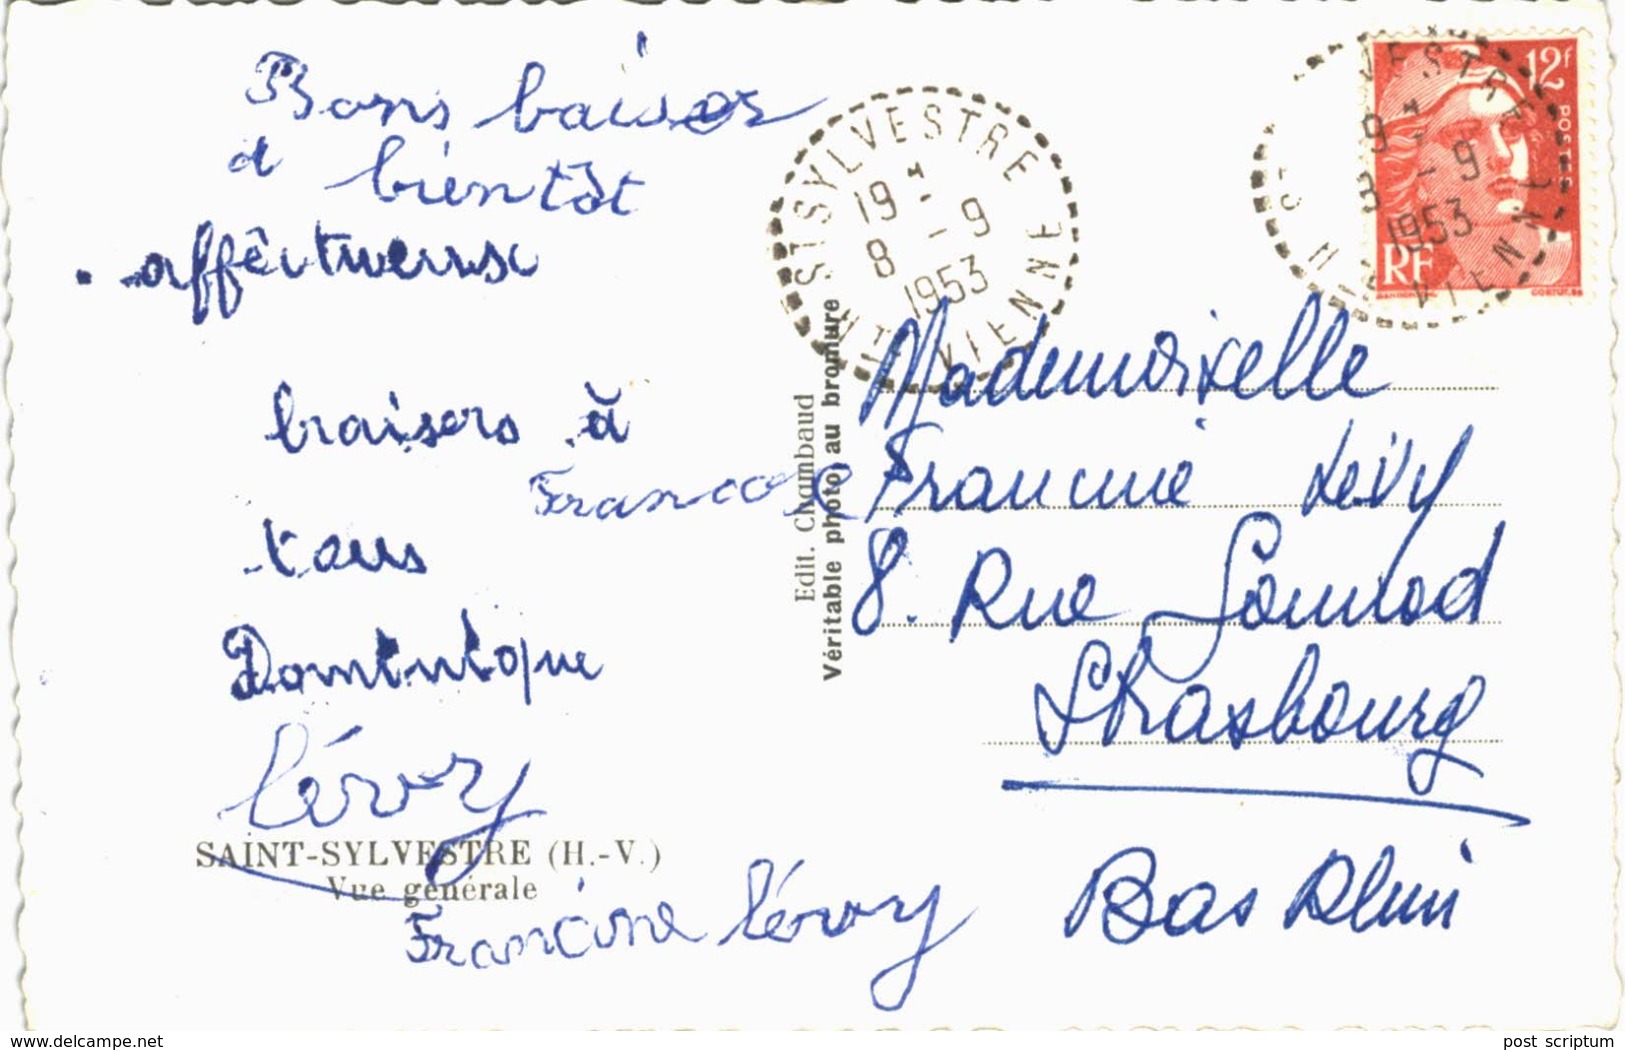 Bons baisers
a bientôt
affêctueusx
braisers à
tous
Francose
Dominique
lévy
SAINT-SYLVESTRE (H.-V.)
Vue générale
Francine lévy
Edit. Chambaud
Véritable photo au bromure
ST SYLVESTRE
19
8 - 9
1953
HTE VIENNE
12f
POSTES
RF
VESTRE
9
8 - 9
1953
VIENNE
Mademoiselle
Francine Lévy
8. Rue
Strasbourg
Bas Rhin
www.delcampe.net
post scriptum